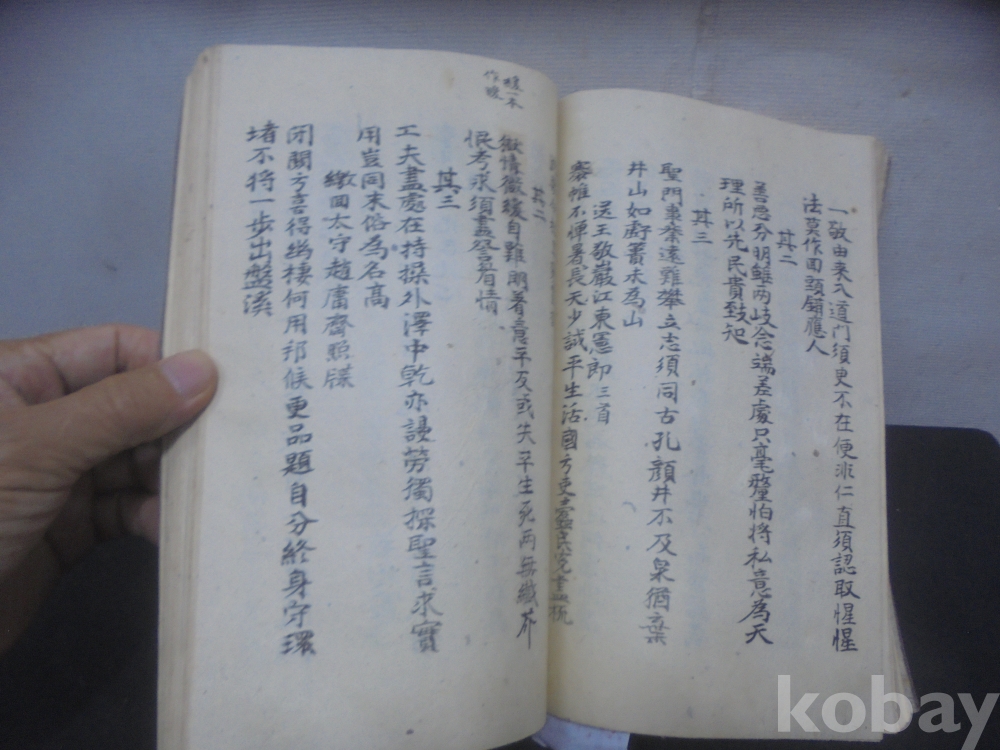 一敬由来入道門須臾不在便非仁直須認取惺惺
法莫作回頭錯應人
其二
善惡分明雖两歧念端差處只毫釐怕將私意為天
理所以先民貴致知
其三
聖門車楽遠難攀立志須同古孔顔井不及泉猶棄
井山如虧簣未為山
送王敬巖江東憲郎三首
褰帷不憚暑長天少試平生活國
其二
獄情微緩自難明着意平反或失平生死两無纎芥
恨考求須盡答着情
其三
工夫盡處在持操外澤中乾亦謾勞獨探聖言求實
用豈同末俗為名高
繳回太守趙庸齋照牒
閉關方喜得幽棲何用邦候更品題自分終身守環
堵不將一步出盤溪
緩一本
作暖
kobay